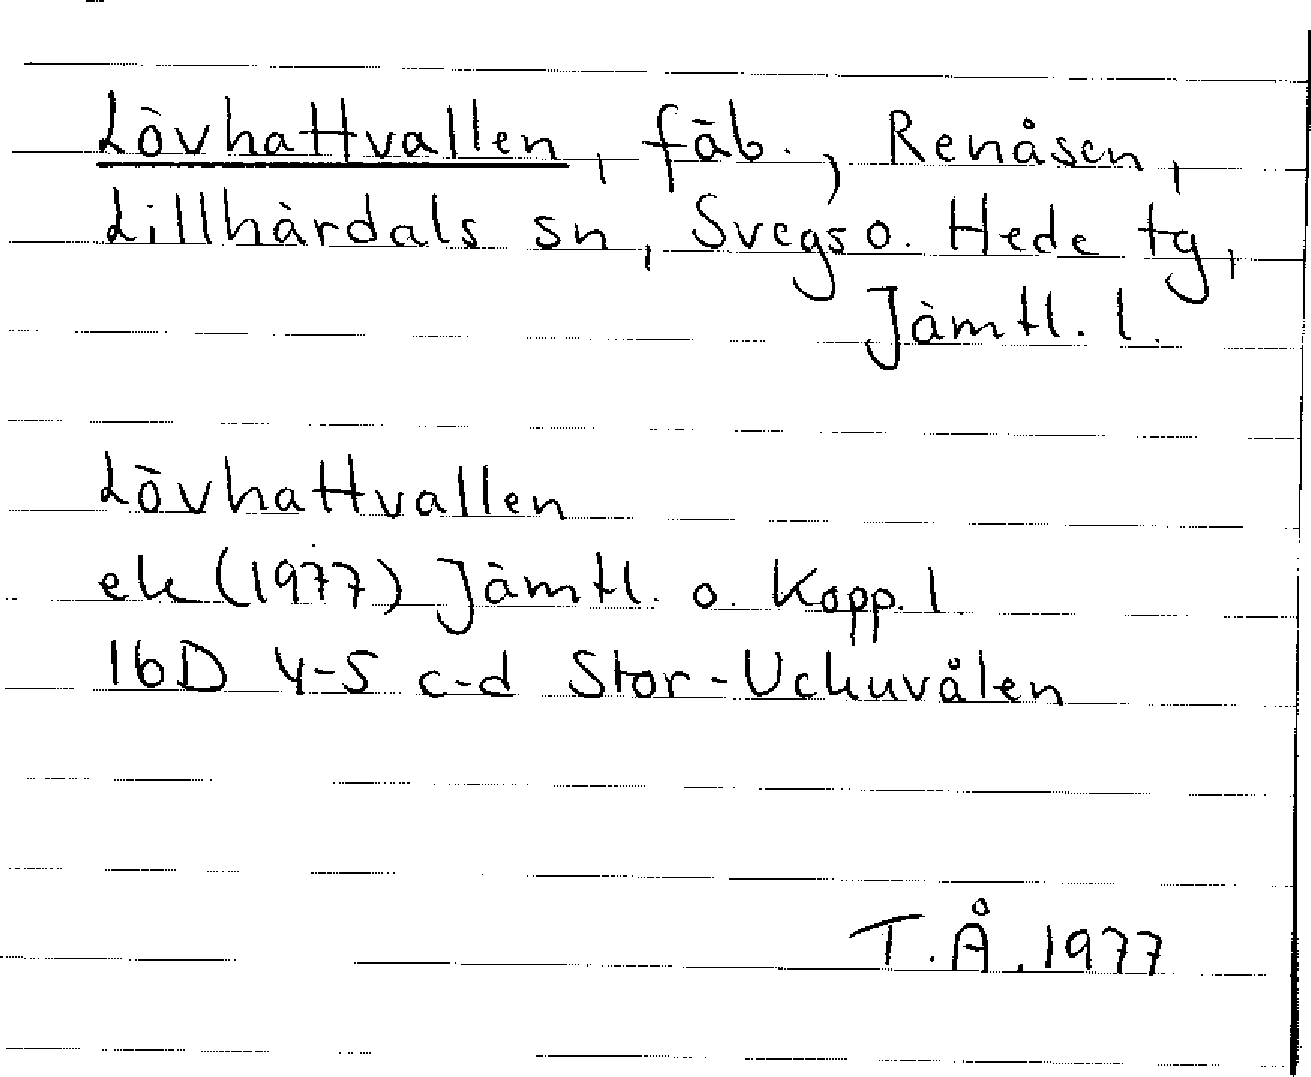 Lövhattvallen, fäb., Renåsen,
Lillhärdals sn, Svegs o. Hede tg,
Jämtl. l.
Lövhattvallen
ek (1977) Jämtl. o. Kopp. l.
16D 4-5 c-d Stor-Uckuvålen
T.Å. 1977